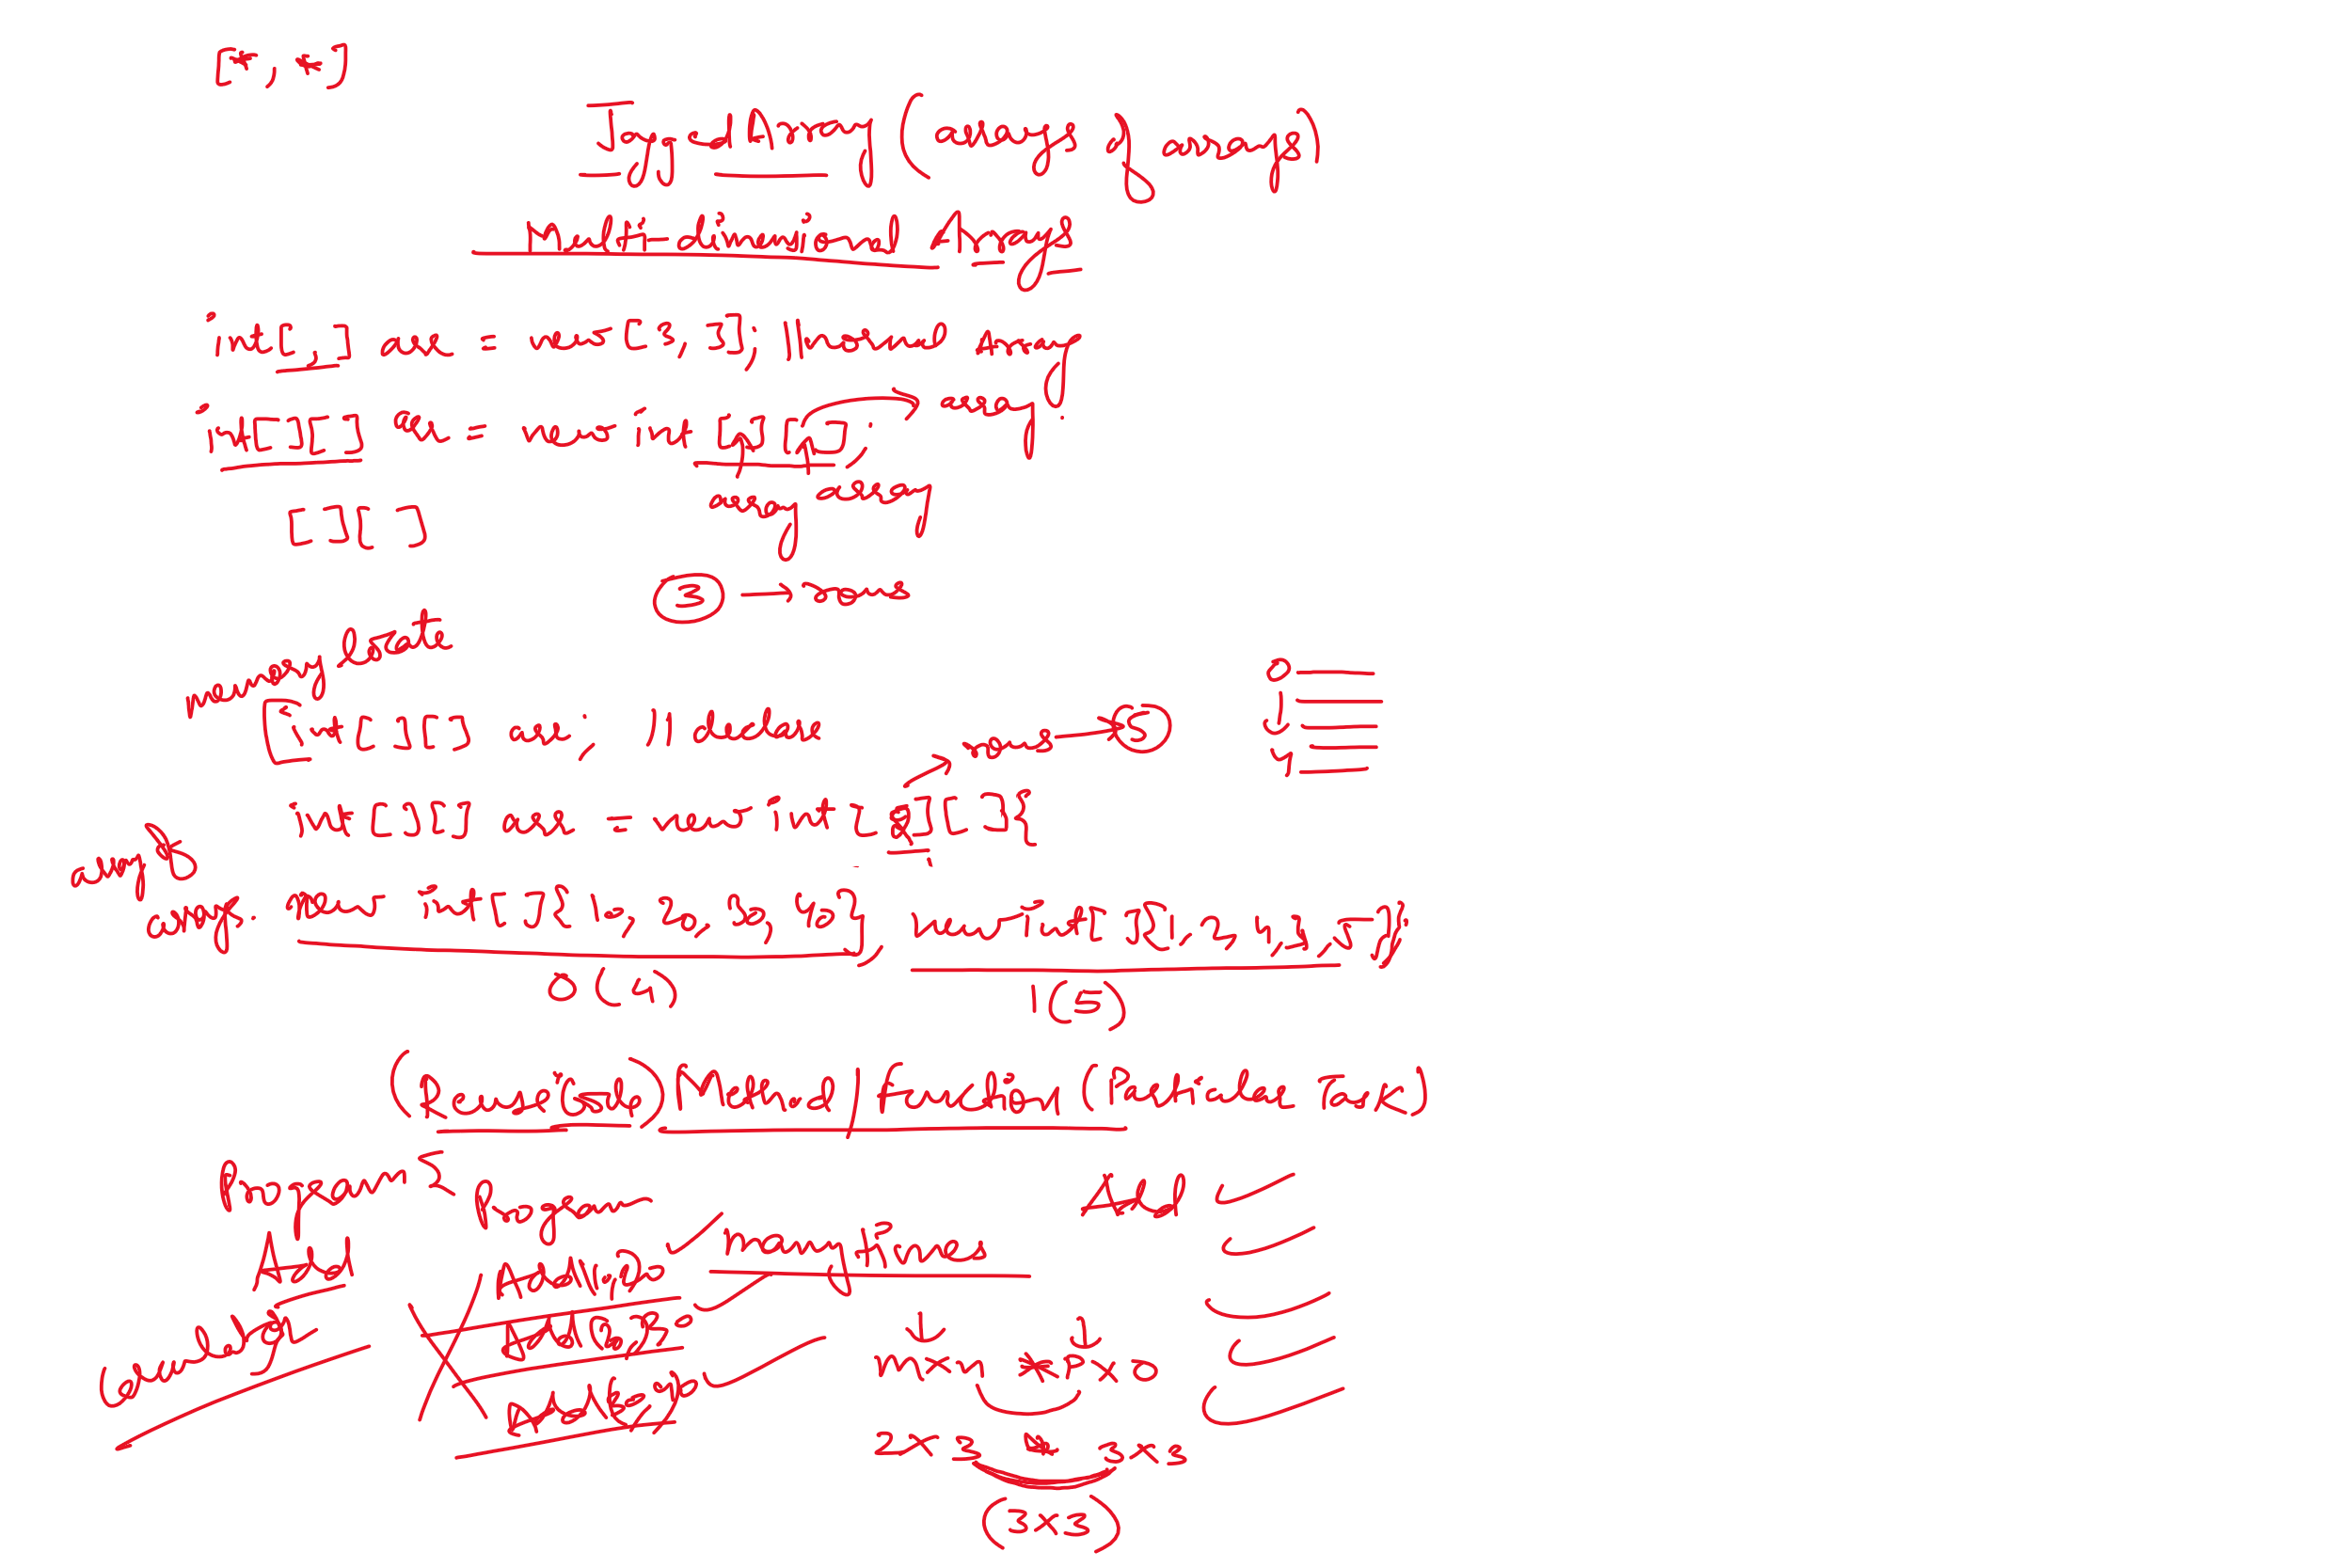 [*, *]
Jagged Array (arrays of arrays)
Multi-dimensional Arrays
int[,] arr = new[3, 3]; || normal Array
int[][] arr = new int[][]; array.
array array
[][]
3 → rows
memory locate
int[][] arr; || declare
rows → 5
0
1
4
int[][] arr = new int[2][]{
array of
array. new int[]{1, 20, 30, 40}, new int[]{1, 2, 4, 3, 5}};
0 (4) 1 (5)
(Rewritable) Method / function (Particular Task)
Program Program Add
Add Add(1,2) many times
calculator Add(2,3)
Add
m×n * p×o
2×3 3×3
(3×3)